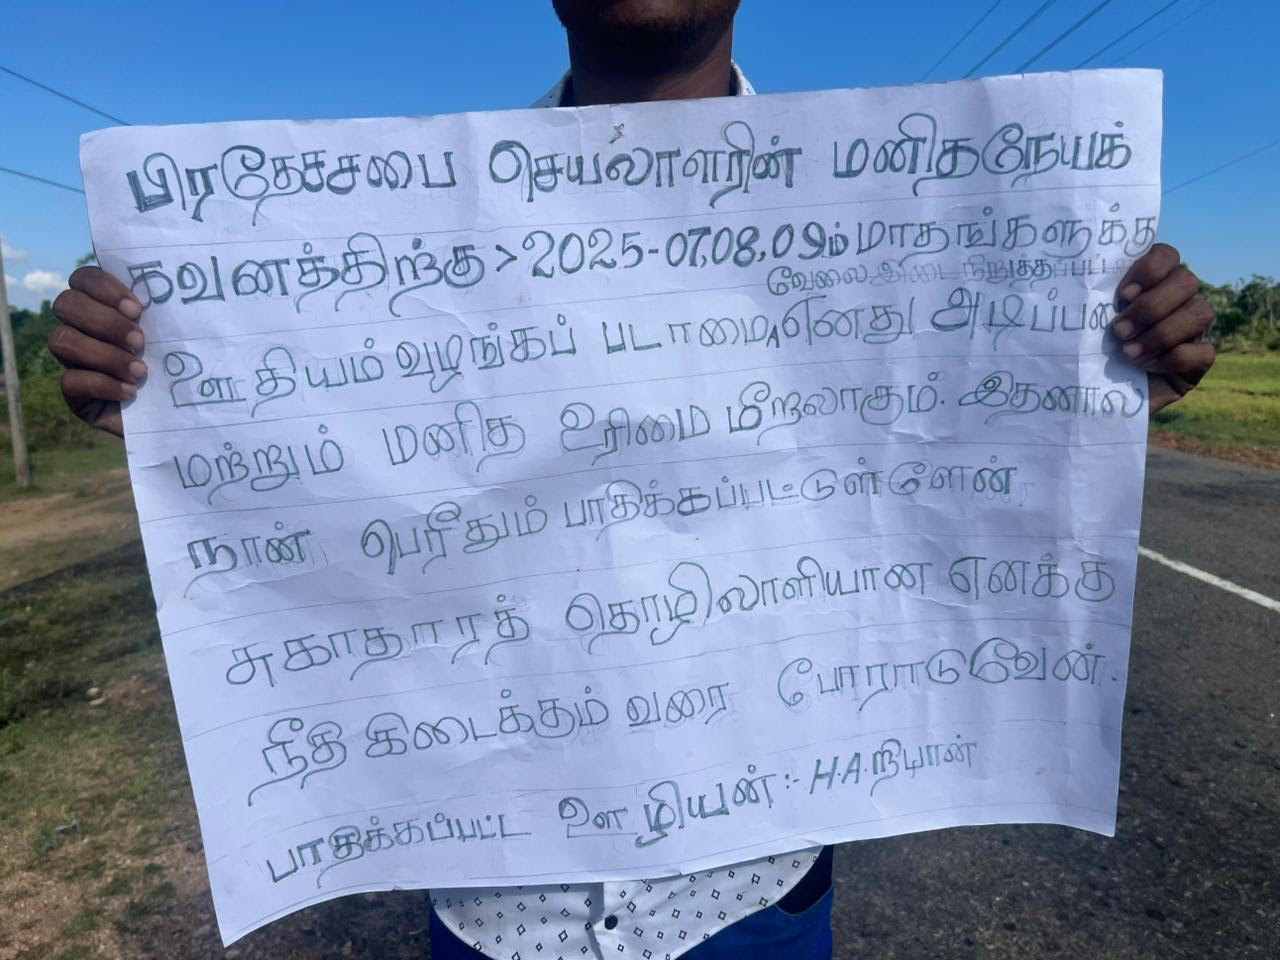 பிரதேச்சபை செயலாளரின் மனிதநேயக்
கவனத்திற்கு > 2025-07,08,09ம் மாதங்களுக்கு
வேலை இடை நிறுத்தப்பட்
ஊதியம் வழங்கப் படாமை எனது அடிப்படை
மற்றும் மனித உரிமை மீறலாகும். இதனால்
நான் பெரிதும் பாதிக்கப்பட்டுள்ளேன்
சுகாதாரத் தொழிலாளியான எனக்கு
நீதி கிடைக்கும் வரை போராடுவேன்.
பாதிக்கப்பட்ட ஊழியன்:- H.A.நியான்